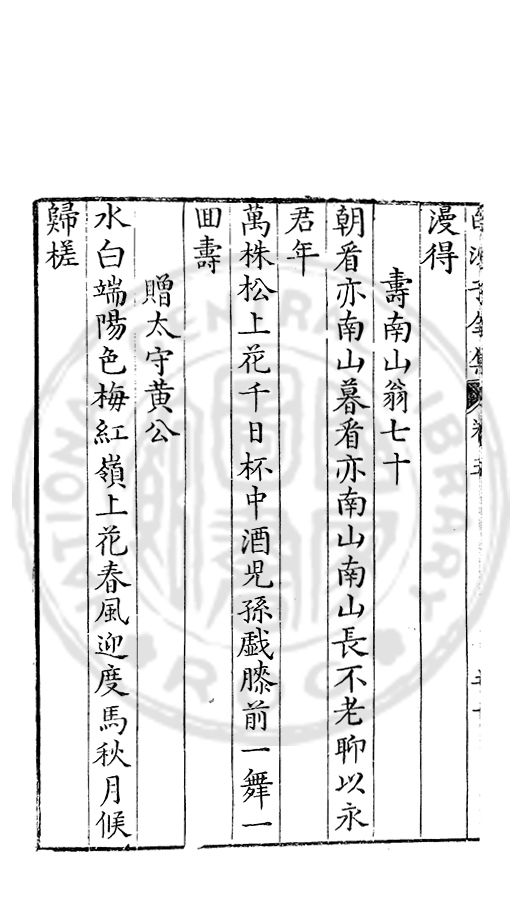 漫得
壽南山翁七十
朝看亦南山暮看亦南山南山長不老聊以永
君年
萬株松上花千日杯中酒兒孫戲膝前一舞一
回壽
贈太守黄公
水白端陽色梅紅嶺上花春風迎度馬秋月候
歸槎
NATIONAL CENTRAL LIBRARY
R.O.C